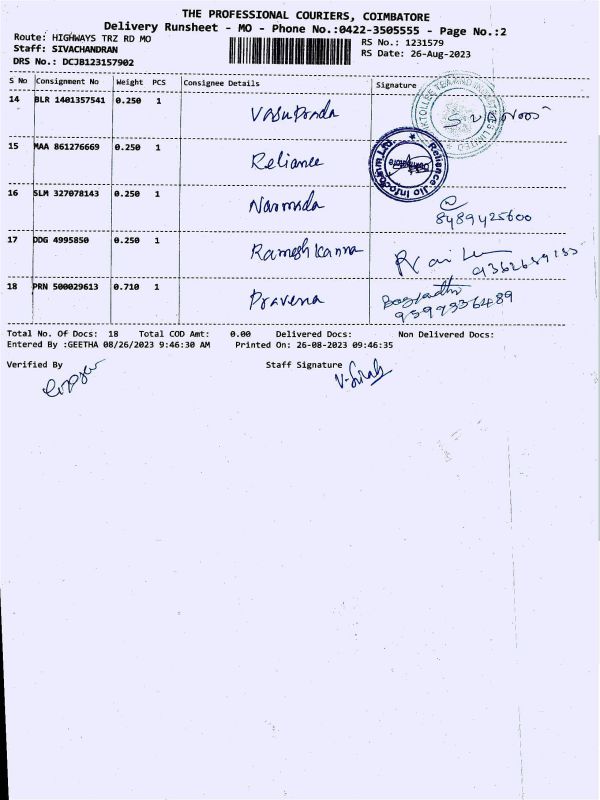 THE PROFESSIONAL COURIERS, COIMBATORE
Delivery Runsheet - MO - Phone No.:0422-3505555 - Page No.:2
Route: HIGHWAYS TRZ RD MO
RS No.: 1231579
Staff: SIVACHANDRAN
RS Date: 26-Aug-2023
DRS No.: DCJB123157902
S No Consignment No Weight PCS Consignee Details Signature
14 BLR 1401357541 0.250 1
15 MAA 861276669 0.250 1 Reliance
Reliance Jio Infocomm Ltd.
16 SLM 327078143 0.250 1 Narmada
8489425600
17 DDG 4995850 0.250 1 Ramesh kanna
18 PRN 500029613 0.710 1 Pravena
9597336489
Total No. Of Docs: 18 Total COD Amt: 0.00 Delivered Docs: Non Delivered Docs:
Entered By :GEETHA 08/26/2023 9:46:30 AM Printed On: 26-08-2023 09:46:35
Verified By Staff Signature